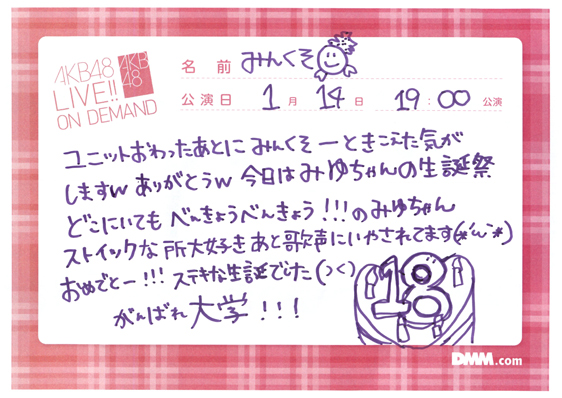 AKB48
LIVE!!
ON DEMAND
AKB
48
名 前 みんくそ
公演日 1 月 14 日 19:00 公演
ユニットおわったあとに みんくそーときこえた気が
しますw ありがとうw 今日は みゆちゃんの生誕祭
どこにいても べんきょうべんきょう!!!のみゆちゃん
ストイックな所大好き あと歌声にいやされてます(*'ω'*)
おめでとー!!! ステキな生誕でした(つく)
がんばれ 大学!!!
18
DMM.com